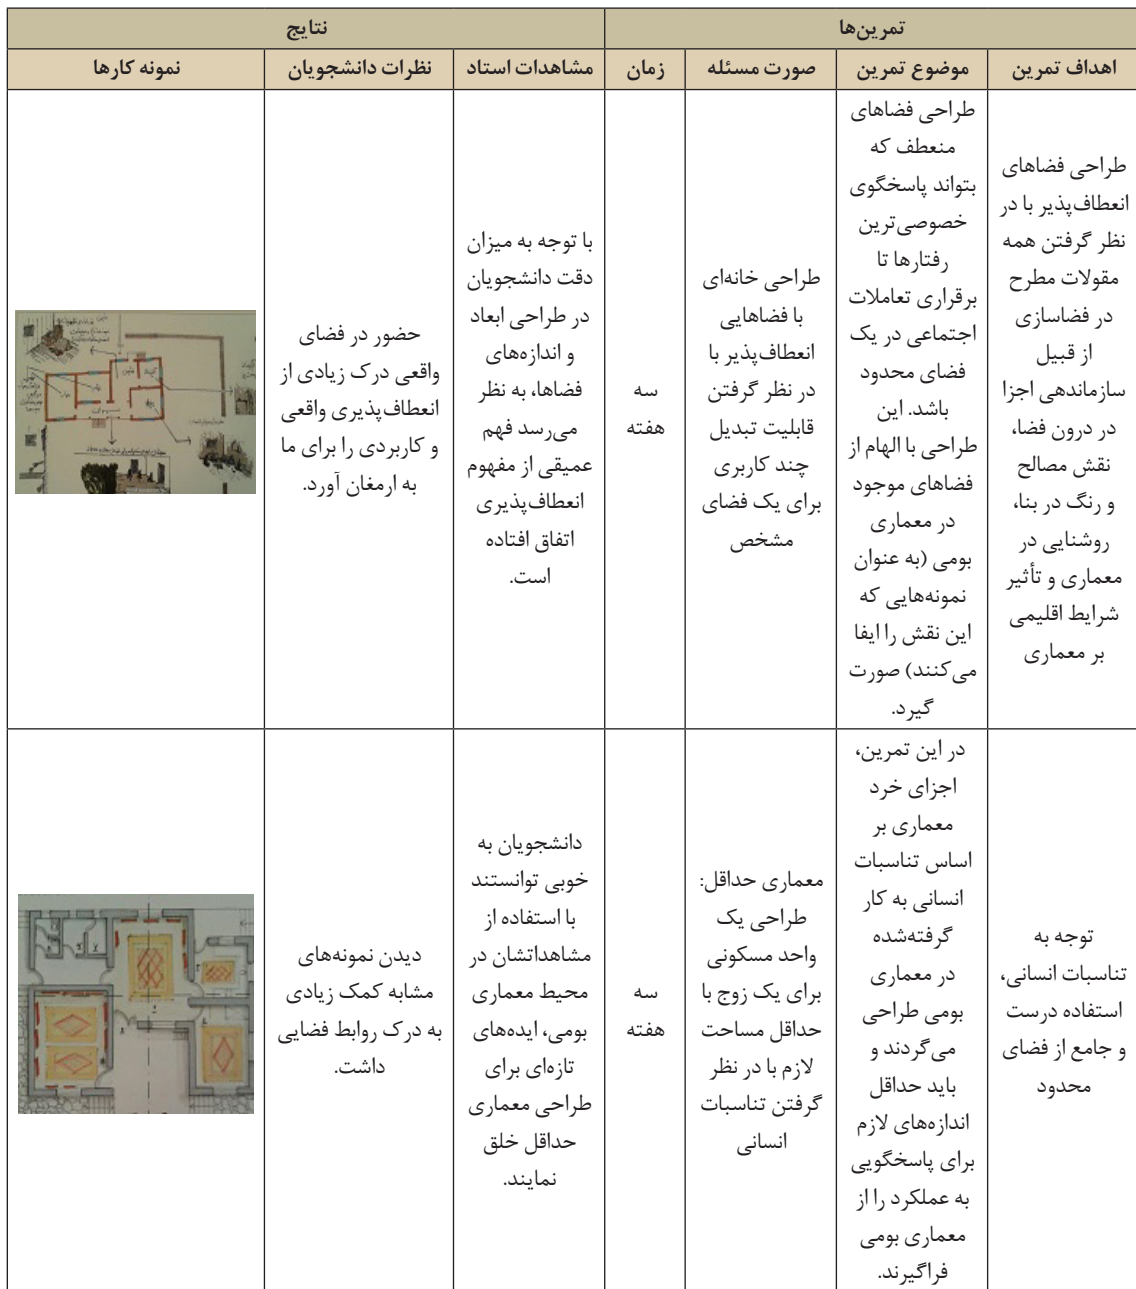 تمرین‌ها
نتایج
اهداف تمرین
موضوع تمرین
صورت مسئله
زمان
مشاهدات استاد
نظرات دانشجویان
نمونه کارها
طراحی فضاهای
انعطاف‌پذیر با در
نظر گرفتن همه
مقولات مطرح
در فضاسازی
از قبیل
سازماندهی اجزا
در درون فضا،
نقش مصالح
و رنگ در بنا،
روشنایی در
معماری و تأثیر
شرایط اقلیمی
بر معماری
طراحی فضاهای
منعطف که
بتواند پاسخگوی
خصوصی‌ترین
رفتارها تا
برقراری تعاملات
اجتماعی در یک
فضای محدود
باشد. این
طراحی با الهام از
فضاهای موجود
در معماری
بومی (به عنوان
نمونه‌هایی که
این نقش را ایفا
می‌کنند) صورت
گیرد.
طراحی خانه‌ای
با فضاهایی
انعطاف‌پذیر با
در نظر گرفتن
قابلیت تبدیل
چند کاربری
برای یک فضای
مشخص
سه
هفته
با توجه به میزان
دقت دانشجویان
در طراحی ابعاد
و اندازه‌های
فضاها، به نظر
می‌رسد فهم
عمیقی از مفهوم
انعطاف‌پذیری
اتفاق افتاده
است.
حضور در فضای
واقعی درک زیادی از
انعطاف‌پذیری واقعی
و کاربردی را برای ما
به ارمغان آورد.
توجه به
تناسبات انسانی،
استفاده درست
و جامع از فضای
محدود
در این تمرین،
اجزای خرد
معماری بر
اساس تناسبات
انسانی به کار
گرفته‌شده
در معماری
بومی طراحی
می‌گردند و
باید حداقل
اندازه‌های لازم
برای پاسخگویی
به عملکرد را از
معماری بومی
فراگیرند.
معماری حداقل:
طراحی یک
واحد مسکونی
برای یک زوج با
حداقل مساحت
لازم با در نظر
گرفتن تناسبات
انسانی
سه
هفته
دانشجویان به
خوبی توانستند
با استفاده از
مشاهداتشان در
محیط معماری
بومی، ایده‌های
تازه‌ای برای
طراحی معماری
حداقل خلق
نمایند.
دیدن نمونه‌های
مشابه کمک زیادی
به درک روابط فضایی
داشت.